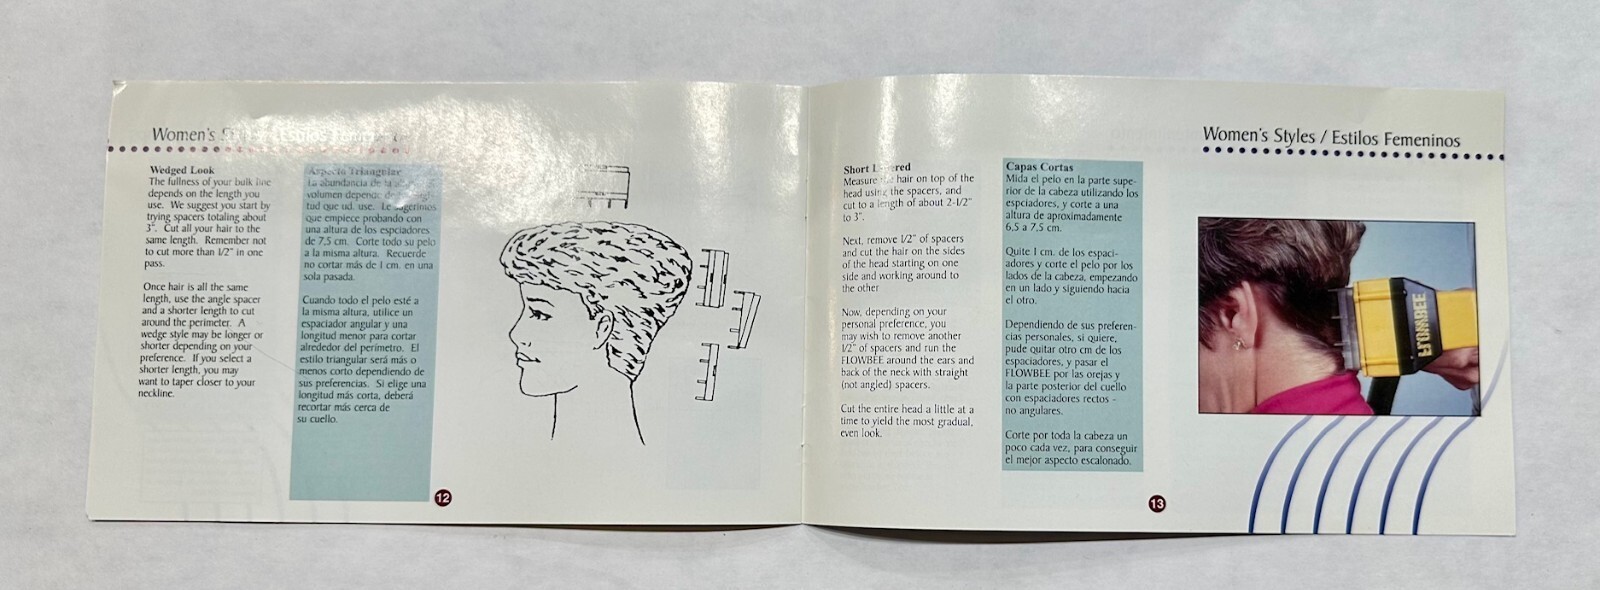 Women's
Wedged Look
The fullness of your bulk line
depends on the length you
use. We suggest you start by
trying spacers totaling about
3". Cut all your hair to the
same length. Remember not
to cut more than 1/2" in one
pass.
Once hair is all the same
length, use the angle spacer
and a shorter length to cut
around the perimeter. A
wedge style may be longer or
shorter depending on your
preference. If you select a
shorter length, you may
want to taper closer to your
neckline.
Aspecto Triangular
La abundancia de la
volumen depende de
tud que ud. use. Le sugerimos
que empiece probando con
una altura de los espciadores
de 7,5 cm. Corte todo su pelo
a la misma altura. Recuerde
no cortar más de 1 cm. en una
sola pasada.
Cuando todo el pelo esté a
la misma altura, utilice un
espaciador angular y una
longitud menor para cortar
alrededor del perímetro. El
estilo triangular será más o
menos corto dependiendo de
sus preferencias. Si elige una
longitud más corta, deberá
recortar más cerca de
su cuello.
12
Women's Styles / Estilos Femeninos
Short Layered
Measure the hair on top of the
head using the spacers, and
cut to a length of about 2-1/2"
to 3".
Next, remove 1/2" of spacers
and cut the hair on the sides
of the head starting on one
side and working around to
the other
Now, depending on your
personal preference, you
may wish to remove another
1/2" of spacers and run the
FLOWBEE around the ears and
back of the neck with straight
(not angled) spacers.
Cut the entire head a little at a
time to yield the most gradual,
even look.
Capas Cortas
Mida el pelo en la parte supe-
rior de la cabeza utilizando los
espciadores, y corte a una
altura de aproximadamente
6,5 a 7,5 cm.
Quite 1 cm. de los espaci-
adores y corte el pelo por los
lados de la cabeza, empezando
en un lado y siguiendo hacia
el otro.
Dependiendo de sus preferen-
cias personales, si quiere,
pude quitar otro cm de los
espaciadores, y pasar el
FLOWBEE por las orejas y
la parte posterior del cuello
con espaciadores rectos -
no angulares.
Corte por toda la cabeza un
poco cada vez, para conseguir
el mejor aspecto escalonado.
FLOWBEE
13